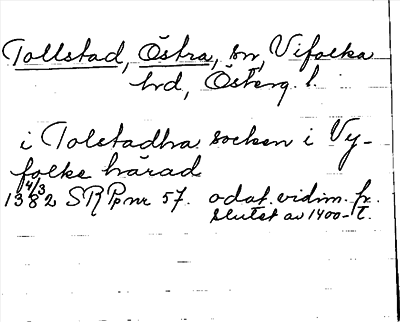 Tollstad, Östra, sn, Vifolka
hrd, Österg. l.
i Tolstadha socken i Vy-
folke härad
4/3
1382 SRPp nr 57. odat. vidim. fr.
slutet av 1400-t.